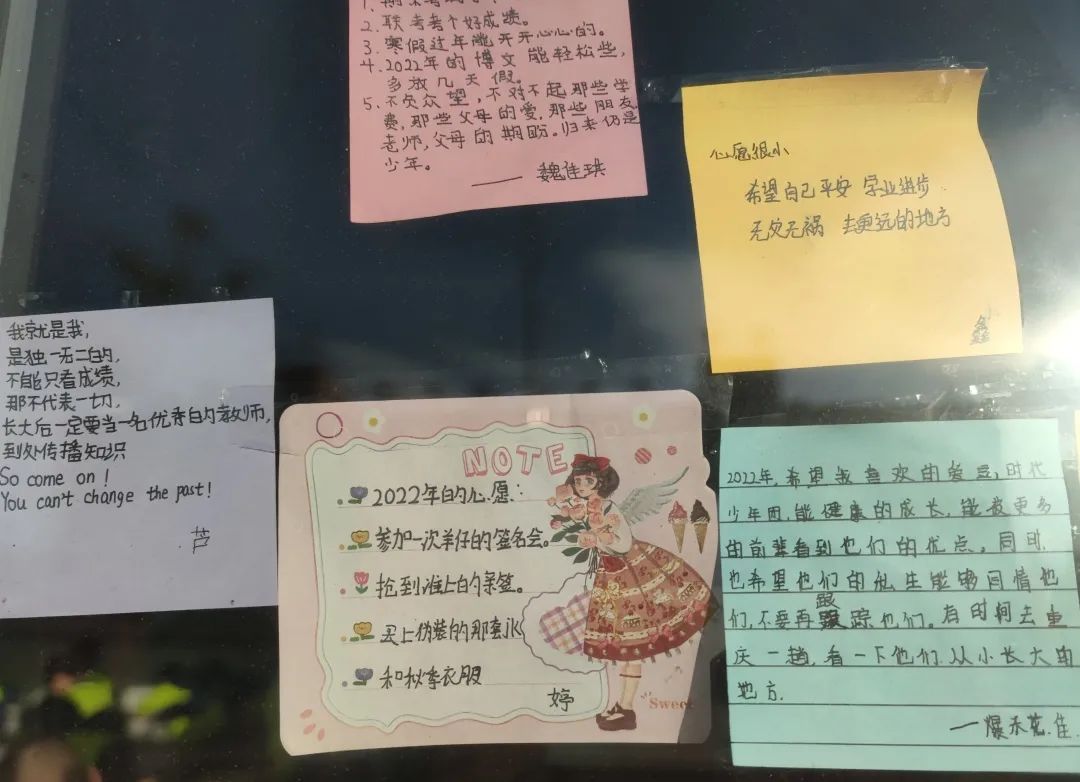 2.联考考个好成绩。
3.寒假过年能开开心心的。
4.2022年的博文能轻松些,
多放几天假。
5.不负众望,不对不起那些学
费,那些父母的爱,那些朋友
老师,父母的期盼。归来仍是
少年。
——魏佳琪
心愿很小
希望自己平安 学业进步
无灾无祸 去更远的地方
鑫
我就是我,
是独一无二的,
不能只看成绩,
那不代表一切,
长大后一定要当一名优秀的教师,
到处传播知识
So come on!
You can't change the past!
芦
NOTE
2022年的心愿:
参加一次羊仔的签名会。
抢到淮上的亲签。
买上伪装的那套jk
和秋季衣服
婷
Sweet
2022年,希望我喜欢的爱豆,时代
少年团,能健康的成长,能被更多
的前辈看到他们的优点。同时,
也希望他们的私生能够同情他
们,不要再跟踪他们。有时间去重
庆一趟,看一下他们从小长大的
地方.